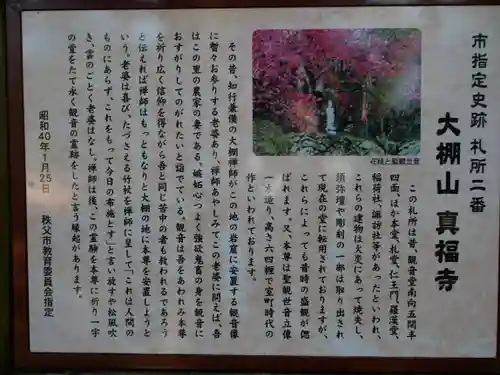 市指定史跡 札所二番
大棚山 真福寺
この札所は昔、観音堂南向五間半
四面、ほか本堂、札堂、仁王門、羅漢堂、
稲荷社、諏訪社等があったといわれ、
これらの建物は火災にあって焼失し、
須弥壇や彫刻の一部は取り出され
て現在の堂に転用されておりますが、
これらによっても昔時の盛観が偲
ばれます。又、本尊は聖観世音立像
一木造り、高さ六四糎で室町時代の
作といわれております。
花桃と聖観世音
その昔、知行兼備の大棚禅師がこの地の岩窟に安置する観音像
に暫々お参りする老婆あり、禅師あやしみてこの老婆に問えば、吾
はこの里の農家の妻である。嫉妬心つよく強欲鬼畜の身を観音に
おすがりしてのがれたいと詣でている。観音は吾をあわれみ本尊
を祈り広く信仰を得ながら吾と同じ苦中の者も救われるであろう
と伝えれば禅師はもっともなりと大棚の地に本尊を安置しようと
いう。老婆は喜び、たづさえる竹杖を禅師に呈して「これは人間の
ものにあらず、これをもって今日の布施とす」と言い放すや松風吹
き、雲のごとく老婆はなし。禅師は後、この霊験を本尊に祈り一宇
の堂をたて永く観音の霊跡をしたと言う縁起があります。
昭和40年1月25日 秩父市教育委員会指定